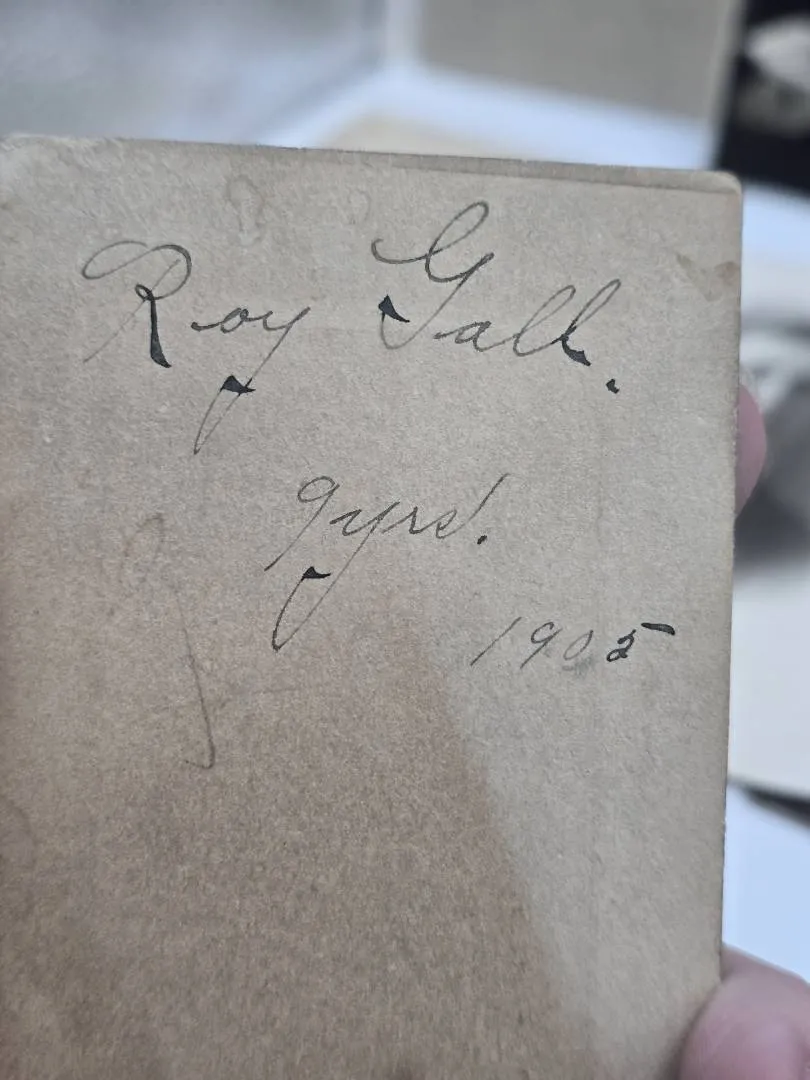 Roy Gall.
9yrs.
1905